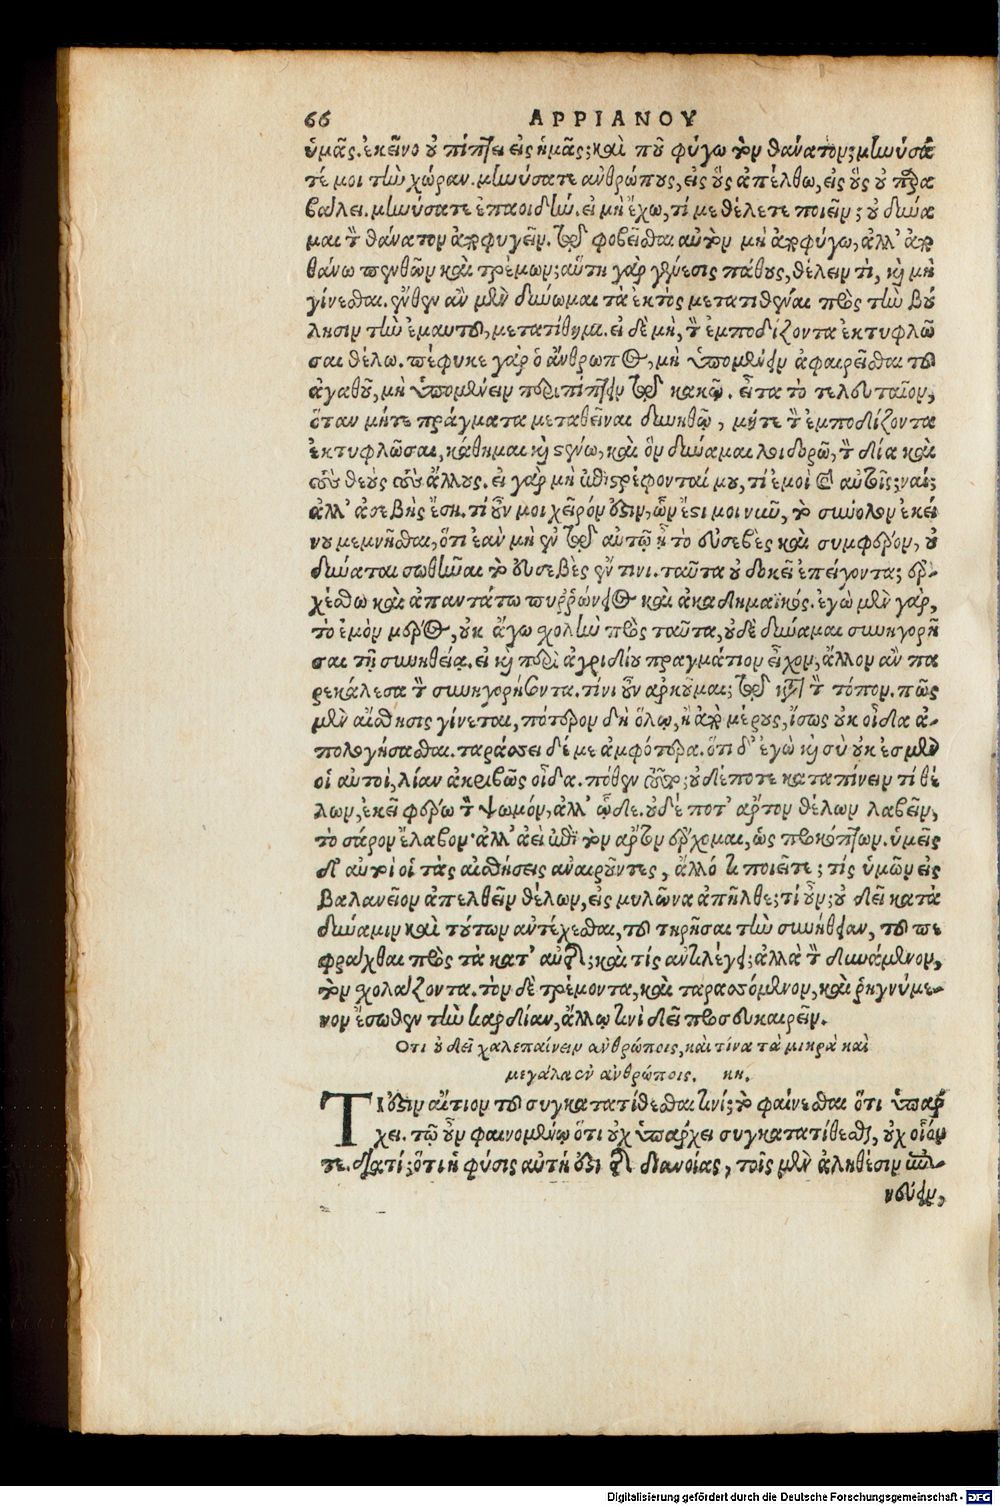 66 ΑΡΡΙΑΝΟΥ
ὑμᾶς. ἐκεῖνο οὐ πίπτει εἰς ἡμᾶς; καὶ ποῦ φύγω τὸν θάνατον; μηνύσα
τέ μοι τὴν χώραν. μηνύσατε ἀνθρώπους, εἰς οὓς ἀπέλθω, εἰς οὓς οὐ παρα
βάλλει. μηνύσατε ἐπαοιδήν. εἰ μὴ ἔχω, τί με θέλετε ποιεῖν; οὐ δύνα
μαι τὸν θάνατον ἀποφυγεῖν. τοῦ φοβεῖσθαι αὐτὸν μὴ ἀποφύγω, ἀλλ' ἀπο
θάνω πενθῶν καὶ τρέμων; αὕτη γὰρ γένεσις πάθους, θέλειν τὶ, καὶ μὴ
γίνεσθαι. ἔνθεν ἂν μὲν δύνωμαι τὰ ἐκτὸς μετατιθέναι πρὸς τὴν βού
λησιν τὴν ἐμαυτοῦ, μετατίθημι. εἰ δὲ μὴ, τὸν ἐμποδίζοντα ἐκτυφλῶ
σαι θέλω. πέφυκε γὰρ ὁ ἄνθρωπος, μὴ ὑπομένειν ἀφαιρεῖσθαι τοῦ
ἀγαθοῦ, μὴ ὑπομένειν περιπίπτειν τοῦ κακῷ. εἶτα τὸ τελευταῖον,
ὅταν μήτε πράγματα μεταθεῖναι δυνηθῶ, μήτε τὸν ἐμποδίζοντα
ἐκτυφλῶσαι, κάθημαι καὶ στένω, καὶ ὃν δύναμαι λοιδορῶ, τὸν δία καὶ
τοὺς θεοὺς τοὺς ἄλλους. εἰ γὰρ μὴ ἐπιστρέφονταί μου, τί ἐμοὶ καὶ αὐτοῖς; ναί;
ἀλλ' ἀσεβὴς ἔσῃ. τί οὖν μοι χεῖρόν ἐστιν, ὧν ἔστι μοι νῦν, τὸ σύνολον ἐκεί
νου μεμνῆσθαι, ὅτι ἐὰν μὴ ἐν τοῦ αὐτῷ ᾖ τὸ εὐσεβὲς καὶ συμφέρον, οὐ
δύναται σωθῆναι τὸ εὐσεβὲς ἔν τινι. ταῦτα οὐ δοκεῖ ἐπείγοντα; ἐρ-
χέσθω καὶ ἀπαντάτω πυῤῥώνειος καὶ ἀκαδημαϊκός. ἐγὼ μὲν γὰρ,
τὸ ἐμὸν μέρος, οὐκ ἄγω σχολὴν πρὸς ταῦτα, οὐδὲ δύναμαι συνηγορῆ
σαι τῇ συνηθείᾳ. εἰ καὶ περὶ ἀγριδίου πραγμάτιον εἶχον, ἄλλον ἂν πα
ρεκάλεσα τὸν συνηγορήσοντα. τίνι οὖν ἀρκοῦμαι; τοῦ κατὰ τὸν τόπον. πῶς
μὲν αἴσθησις γίνεται, πότερον δὴ ὅλῳ, ἢ ἀπὸ μέρους, ἴσως οὐκ οἶδα ἀ-
πολογήσασθαι. ταράσσει δέ με ἀμφότερα. ὅτι δ' ἐγὼ καὶ σὺ οὐκ ἐσμὲν
οἱ αὐτοὶ, λίαν ἀκριβῶς οἶδα. πόθεν τοῦτο; οὐδέποτε καταπίνειν τὶ θέ
λων, ἐκεῖ φέρω τὸν ψωμόν, ἀλλ' ὧδε. οὐδέ ποτ' ἄρτον θέλων λαβεῖν,
τὸ σάρον ἔλαβον· ἀλλ' ἀεὶ ἐπὶ τὸν ἄρτον ἔρχομαι, ὡς προκόπτων. ὑμεῖς
δ' αὐτοὶ οἱ τὰς αἰσθήσεις ἀναιροῦντες, ἄλλό τι ποιεῖτε; τίς ὑμῶν εἰς
βαλανεῖον ἀπελθεῖν θέλων, εἰς μυλῶνα ἀπῆλθε; τί οὖν; οὐ δεῖ κατὰ
δύναμιν καὶ τούτων ἀντέχεσθαι, τοῦ τηρῆσαι τὴν συνήθειαν, τοῦ πε
φράχθαι πρὸς τὰ κατ' αὐτῆς; καὶ τίς ἀντιλέγει; ἀλλὰ τὸν δυνάμενον,
τὸν σχολάζοντα. τὸν δὲ τρέμοντα, καὶ ταρασσόμενον, καὶ ῥηγνύμε-
νον ἔσωθεν τὴν καρδίαν, ἄλλῳ τινὶ δεῖ προσευκαιρεῖν.
Ὅτι οὐ δεῖ χαλεπαίνειν ἀνθρώποις, καὶ τίνα τὰ μικρὰ καὶ
μεγάλα ἐν ἀνθρώποις. κη.
ΤΙ ἐστιν αἴτιον τοῦ συγκατατίθεσθαι τινί; τὸ φαίνεσθαι ὅτι ὑπάρ
χει. τῷ οὖν φαινομένῳ ὅτι οὐχ ὑπάρχει συγκατατίθεσθαι, οὐχ οἷόν
τε. διατί; ὅτι ἡ φύσις αὐτή ἐστι τῆς διανοίας, τοῖς μὲν ἀληθέσιν ἐπι-
νεύειν,
Digitalisierung gefördert durch die Deutsche Forschungsgemeinschaft - DFG